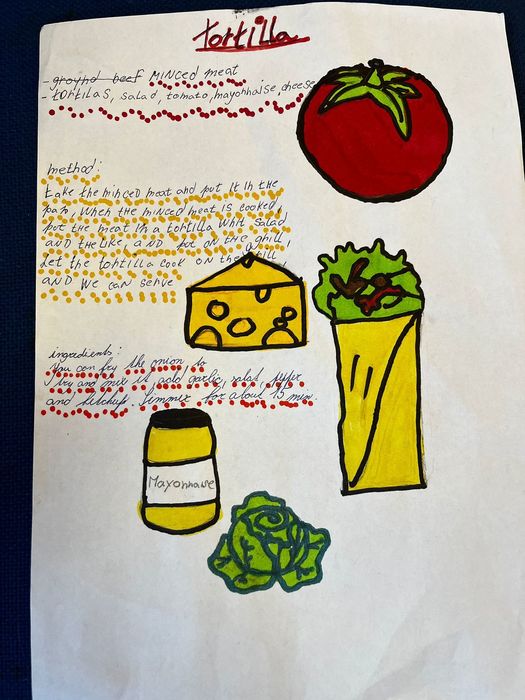 tortilla
- ground beef MINCED meat
- tortilas, salad, tomato, mayonnaise, cheese
method:
take the minced meat and put it in the
pan, When the minced meat is cooked,
put the meat in a tortilla whit salad
AND the like, AND put ON the grill,
Let the tortilla cook ON the grill,
AND We can serve
ingredients:
You can fry the onion to
fry and mix it, add garlic, salad, pepper
and ketchup. Simmer for about 15 min.
Mayonnaise